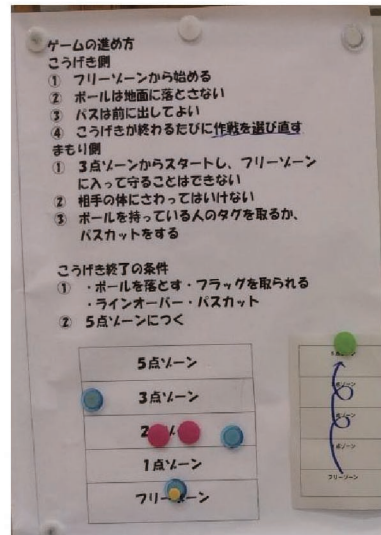 ゲームの進め方
こうげき側
① フリーゾーンから始める
② ボールは地面に落とさない
③ パスは前に出してよい
④ こうげきが終わるたびに作戦を選び直す
まもり側
① 3点ゾーンからスタートし、フリーゾーン
に入って守ることはできない
② 相手の体にさわってはいけない
③ ボールを持っている人のタグを取るか、
パスカットをする
こうげき終了の条件
① ・ボールを落とす・フラッグを取られる
・ラインオーバー・パスカット
② 5点ゾーンにつく
5点ゾーン
3点ゾーン
2
1点ゾーン
フリーゾーン
フリーゾーン